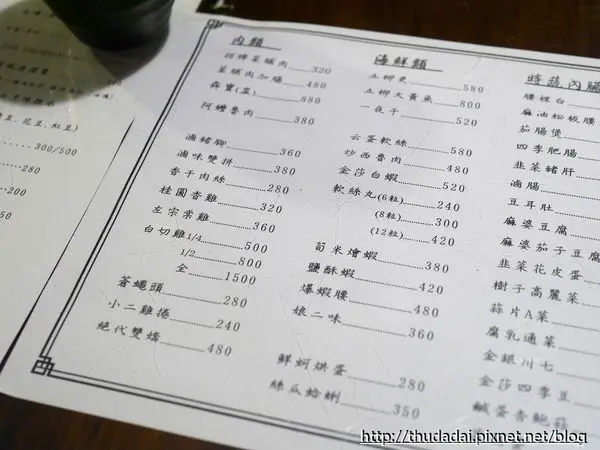 豆, 花豆, 紅豆)
300/500
280
200
50
肉類
招牌菜脯肉 320
菜脯肉加腸 480
霖寶(盅) 880
阿嬤魯肉 380
滷豬腳 360
滷味雙拼 380
香干肉絲 280
桂圓香雞 320
左宗棠雞 360
白切雞 1/4 500
1/2 800
全 1500
蒼蠅頭 280
小二雞捲 240
絕代雙嬌 480
海鮮類
五柳更 580
五柳大黃魚 800
一夜干 520
云蛋軟絲 580
炒西魯肉 480
金莎白蝦 520
軟絲丸(6粒) 240
(8粒) 300
(12粒) 420
筍米燴蝦 380
鹽酥蝦 420
爆蝦腰 480
娘二味 360
鮮蚵烘蛋 280
絲瓜蛤蜊 350
時蔬內臟
腰裡白
麻油松板腰
茄腸煲
四季肥腸
韭菜豬肝
滷腸
豆耳肚
麻婆豆腐
麻婆茄子豆
韭菜花皮蛋
樹子高麗菜
蒜片A菜
腐乳通菜
金銀川七
金莎四季豆
鹹蛋杏鮑菇
http://thudadai.pixnet.net/blog